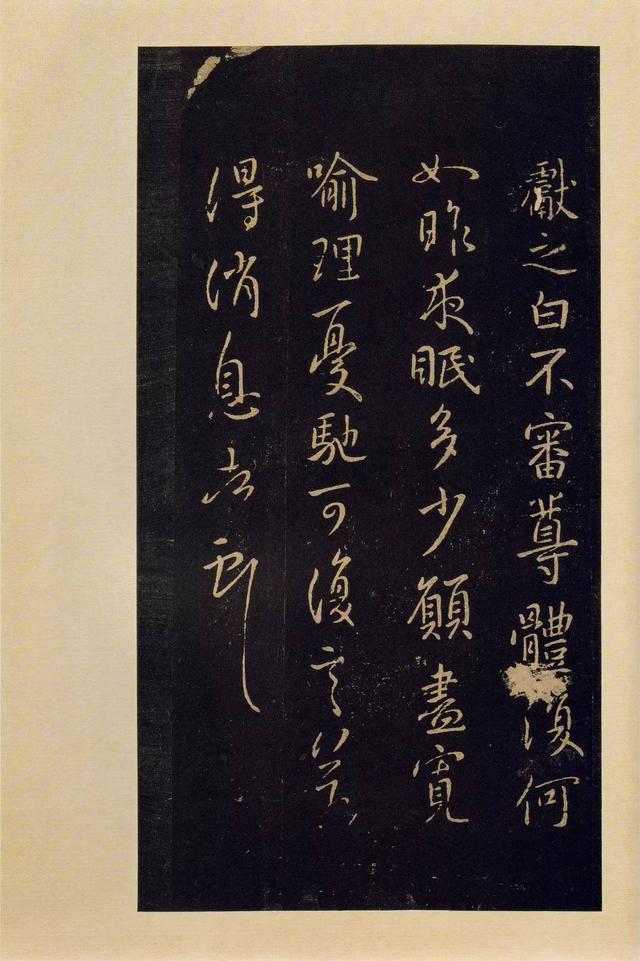 獻之白不審尊體復何
如昨夜眠多少願盡寬
喻理憂馳可復言
得消息